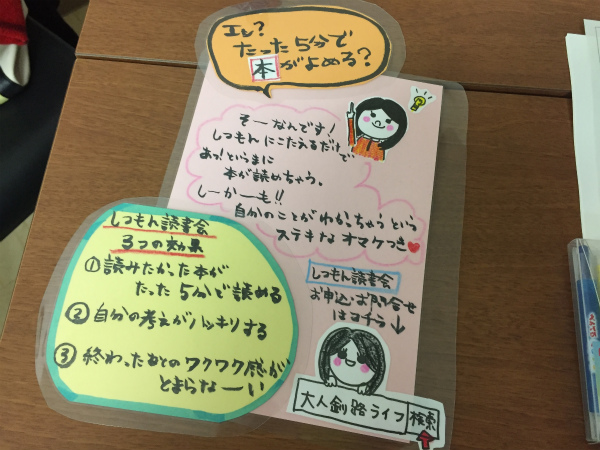 エレ?
たった5分で
本がよめる?
そーなんです!
しつもんにこたえるだけで
あっ!というまに
本が読めちゃう、
しーかーも!!
自分のことがわかっちゃうという
ステキなオマケつき♥
しつもん読書会
3つの効果
①読みたかった本が
たった5分で読める
②自分の考えがハッキリする
③終わったあとのワクワク感が
とまらなーい
しつもん読書会
お申込・お問合せ
はコチラ↓
大人釧路ライフ 検索